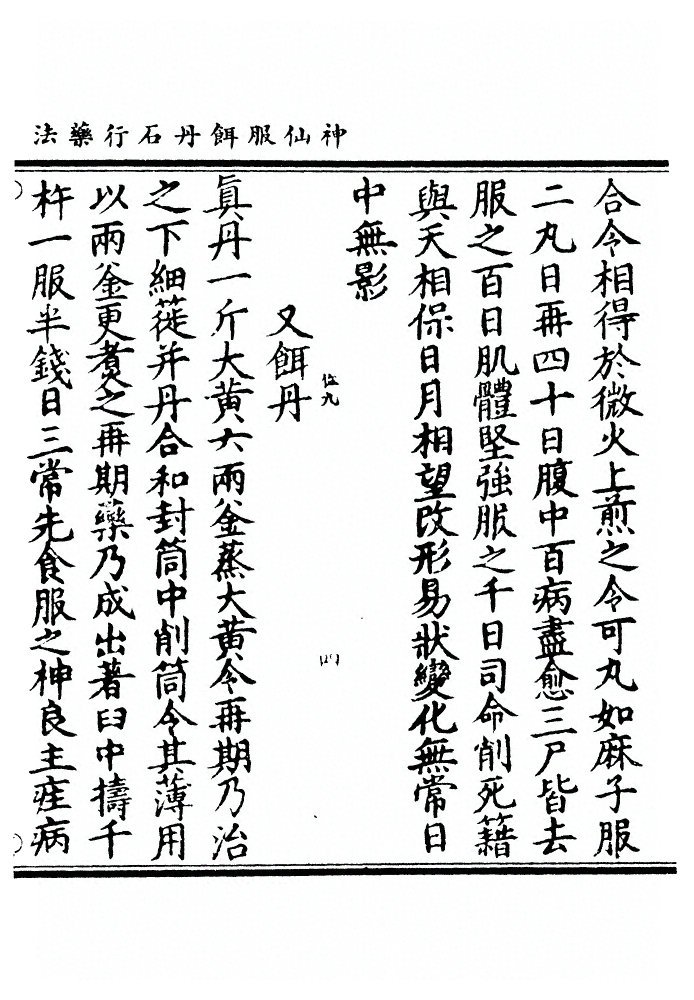 神仙服餌丹石行藥法
合令相得於微火上煎之令可丸如麻子服
二丸日再四十日腹中百病盡愈三尸皆去
服之百日肌體堅強服之千日司命削死籍
與天相保日月相望改形易狀變化無常日
中無影
又餌丹
位九
四
眞丹一斤大黃六兩釜蒸大黃令再期乃治
之下細蓰并丹合和封筒中削筒令其薄用
以兩釜更煮之再期藥乃成出著臼中擣千
杵一服半錢日三常先食服之神良主疰病